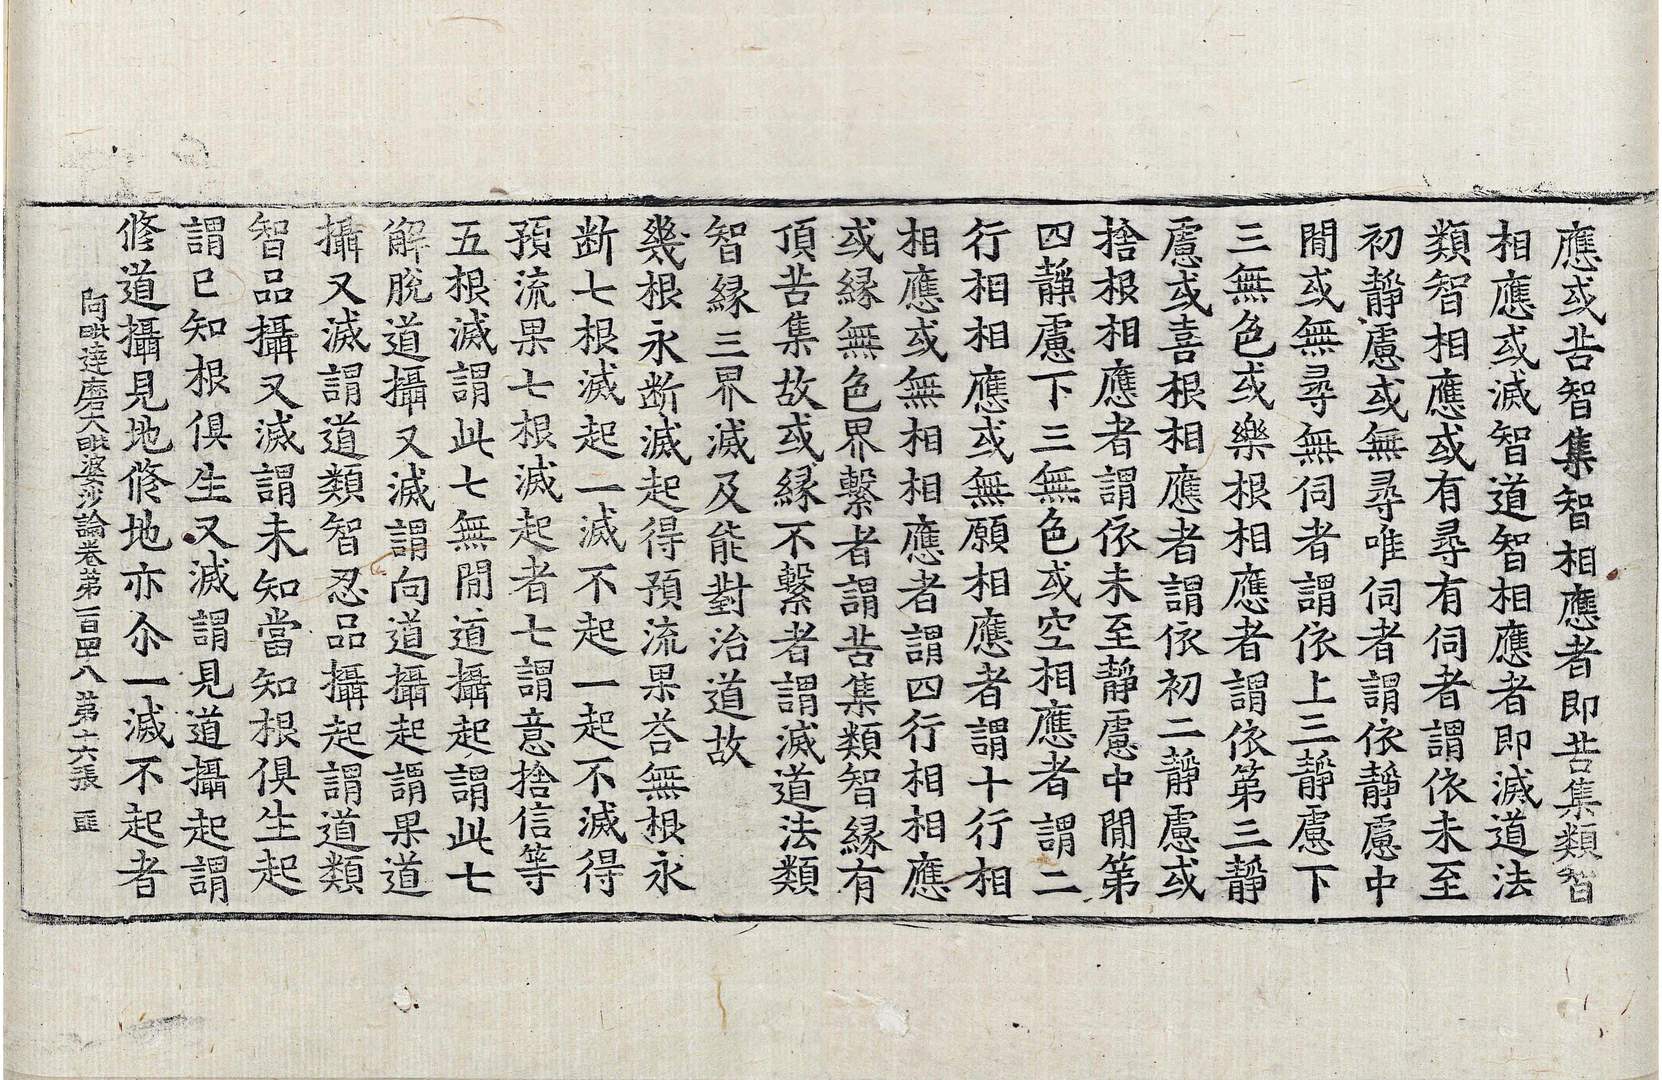 應或苦智集智相應者即苦集類智
相應或滅智道智相應者即滅道法
類智相應或有尋有伺者謂依未至
初靜慮或無尋唯伺者謂依靜慮中
閒或無尋無伺者謂依上三靜慮下
三無色或樂根相應者謂依第三靜
慮或喜根相應者謂依初二靜慮或
捨根相應者謂依未至靜慮中閒第
四靜慮下三無色或空相應者謂二
行相相應或無願相應者謂十行相
相應或無相相應者謂四行相相應
或緣無色界繫者謂苦集類智緣有
頂苦集故或緣不繫者謂滅道法類
智緣三界滅及能對治道故
幾根永断滅起得預流果荅無根永
断七根滅起一滅不起一起不滅得
預流果七根滅起者七謂意捨信等
五根滅謂此七無閒道攝起謂此七
解脫道攝又滅謂向道攝起謂果道
攝又滅謂道類智忍品攝起謂道類
智品攝又滅謂未知當知根俱生起
謂已知根俱生又滅謂見道攝起謂
修道攝見地修地亦尒一滅不起者
阿毗達磨大毗婆沙論卷第一百四八 第十六張 匪